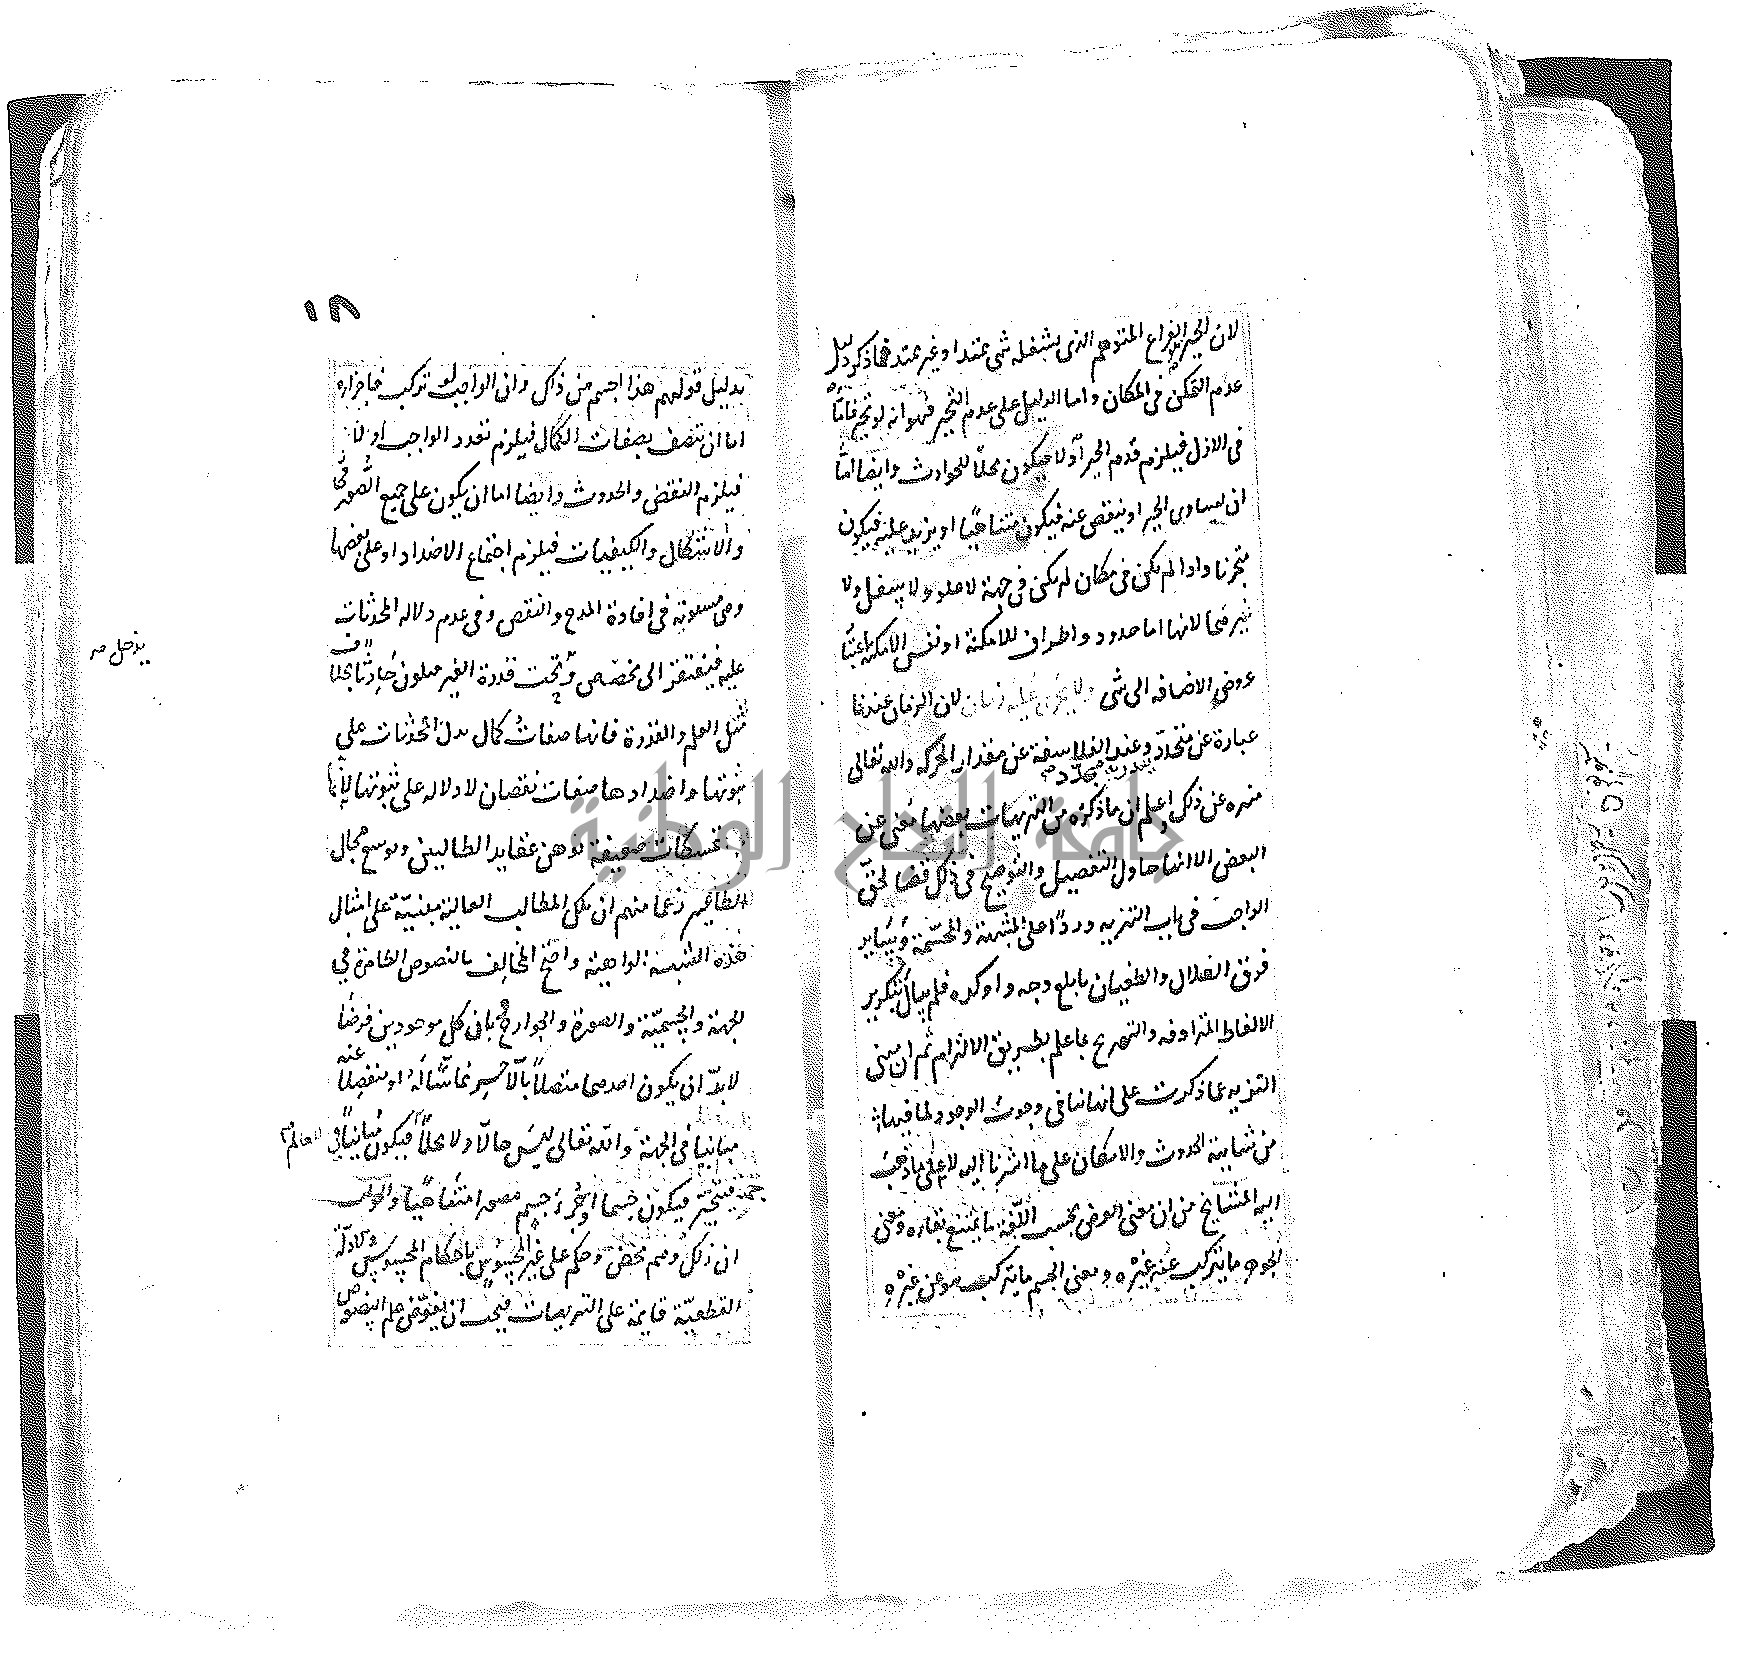 لان الحيز هو الفراغ المتوهم الذى يشغله شى ممتد او غير ممتد فما ذكر دليل
عدم التمكن فى المكان واما الدليل على عدم التحيز فهو انه لو تحيز فاما
فى الازل فيلزم قدم الحيز أو لا فيكون محلا للحوادث وايضا امّا
ان يساوى الحيز او ينقص عنه فيكون متناهيًا او يزيد عليه فيكون
متجزئا واذا لم يكن فى مكان لم يكن فى جهة لا علو ولا سفل ولا
غيرهما لانها اما حدود واطراف للامكنة او نفس الامكنة باعتبار
عروض الاضافه الى شى ولا يجرى عليه زمان لان الزمان عندنا
عبارة عن متجدّد يقدر به متجدد وعند الفلاسفة عن مقدار الحركه والله تعالى
منزه عن ذلك واعلم ان ما ذكره من التنزيهات بعضها مغنى عن
البعض الا انها حاول التفصيل والتوضيح فى ذلك قضا لحقّ
الواجب فى باب التنزيه وردّا على المشبهة والمجسّمة وسَاير
فرق الضلال والطغيان بابلغ وجه واوكده فلم يبال بتكرير
الالفاظ المترادفه والتصريح بما علم بطريق الالتزام ثم ان مبنى
التنزيه عما ذكرت على انها تنافى وجوب الوجود لما فيها
من شايبة الحدوث والامكان على ما اشرنا اليه لا على ما ذهب
اليه المشايخ من ان معنى العرض بحسب اللّغة ما يمتنع بقاره ومعنى
الجوهر ما يتركب عنه غيره ومعنى الجسم ما يتركب هو عن غيره
١٨
بدليل قولهم هذا اجسم من ذاك وان الواجب لو تركب فاجزاره
اما ان تتصف بصفات الكمال فيلزم تعدد الواجب أو لا
فيلزم النقض والحدوث وايضا اما ان يكون على جميع الصّور
والاشكال والكيفيات فيلزم اجتماع الاضداد او على بعضها
وهى مستوية فى افادة المدح والنقص وفى عدم دلاله المحدثات
عليه فيفتقر الى مخصّص ويَدخل تحت قدرة الغير فيكون حادثًا بخلاف
يدخل صه
مثل العلم والقدرة فانها صفاتُ كمال يدل المحدثات على
ثبوتها واضدادها صفات نقصان لا دلاله على ثبوتها لأنها
تمسكات ضعيفة توهن عقايد الطالبين وتوسع مجال
الطاعنين زعما منهم ان تلك المطالب العالية مبنيّة على امثال
هذه الشبهة الواهية واحتج المخالف بالنصوص الظاهرة في
الجهة والجسميّة والصورة والجوارح وبان كل موجودين فرضًا
لا بدّ ان يكون احدهما متصلاً بالآخر مماسًّا لهُ او منفصلاً عنه
مباينا فى الجهة والله تعالى ليسَ حالاّ ولا محلاً فيكون مباينًا فى
جهة فيتحيّز فيكون جسما أو جُزءَ جسم مصورا متناهيًا والجواب
ان ذلك وهم محض وحكم على غير المحسُوس باحكام المحسوس والادلّة
القطعيّة قايمة على التنزيهات فيجب ان يفوّض علم النصوص